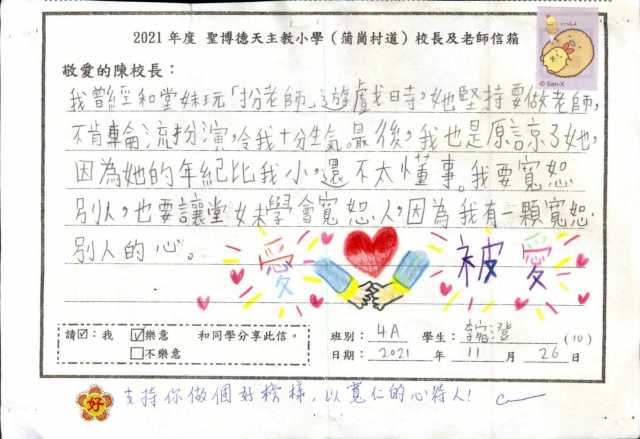 2021 年度 聖博德天主教小學（蒲崗村道）校長及老師信箱
© San-X
敬愛的陳校長：
我曾經和堂妹玩「扮老師」遊戲時，她堅持要做老師，
不肯輪流扮演，令我十分生氣。最後，我也是原諒了她，
因為她的年紀比我小，還不太懂事。我要寬恕
別人，也要讓堂妹學會寬恕人，因為我有一顆寬恕
別人的心。
愛 被愛
請☑：我 ☑樂意 和同學分享此信。
□不樂意
班別： 4A 學生： 澄 (10)
日期： 2021 年 11 月 26 日
好 支持你做個好榜樣，以寬仁的心待人！